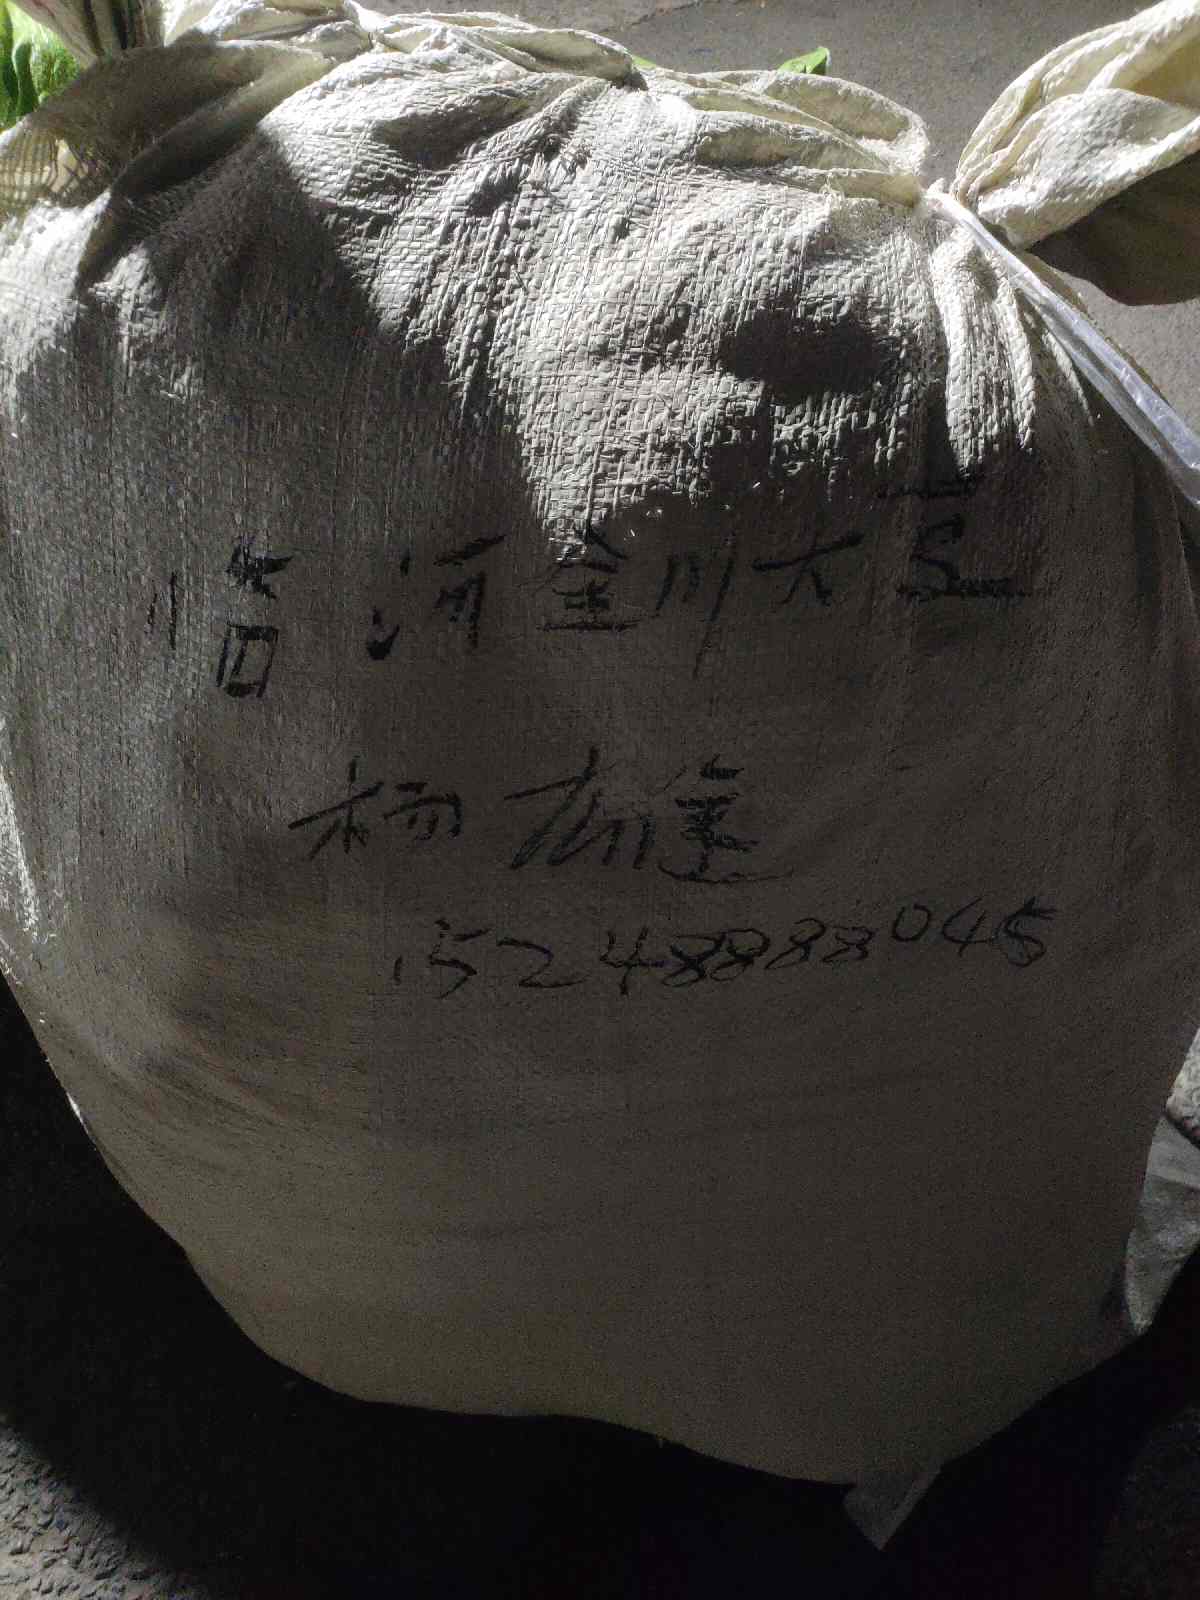 临河金川大豆
杨
15248888045